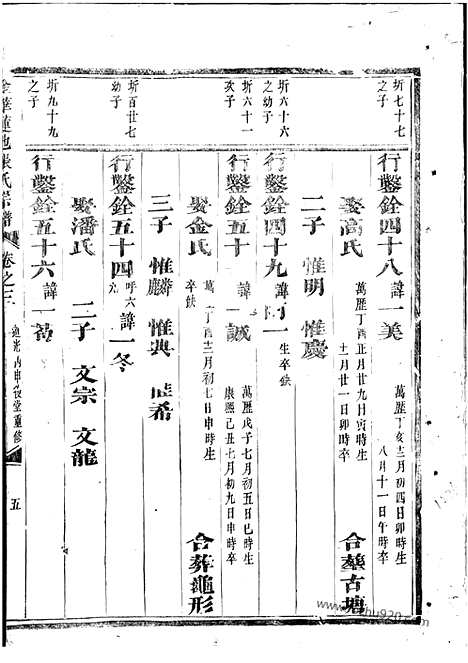 圻七十七之子
行鑿銓四十八 諱一美 萬歷丁亥十二月初四日卯時生 八月十一日午時卒
娶馮氏 萬歷丁酉正月廿九日寅時生 十一月廿一日卯時卒 合塟古塘
二子 惟明 惟慶
圻六十六之幼子
行鑿銓四十九 諱一 生卒缺
圻六十一次子
行鑿銓五十 諱一誠 萬歷戊子七月初五日巳時生 康熙己丑七月初九日申時卒
娶金氏 萬丁酉十二月初七日申時生 卒缺 合葬龜形
三子 惟麟 惟典 希
圻百廿七幼子
行鑿銓五十四 呼六九 諱一冬
娶潘氏 二子 文宗 文龍
圻九十九之子
行鑿銓五十六 諱一
金華蓮池張氏宗譜 卷之三 丙申 堂重修 五